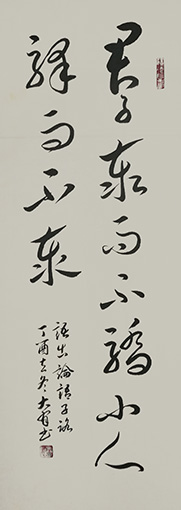 君子泰而不驕小人
驕而不泰
語出論語子路
丁酉冬大書